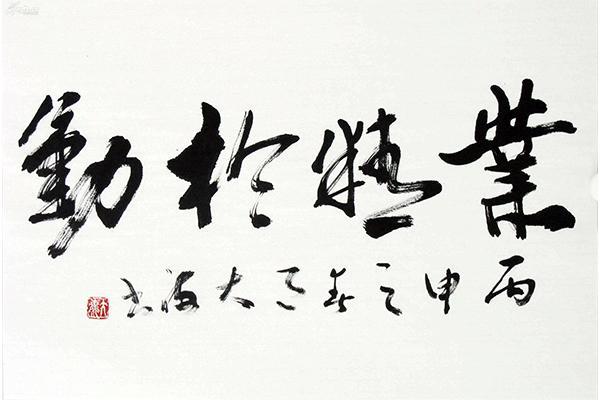 業精於勤
丙申之春大书